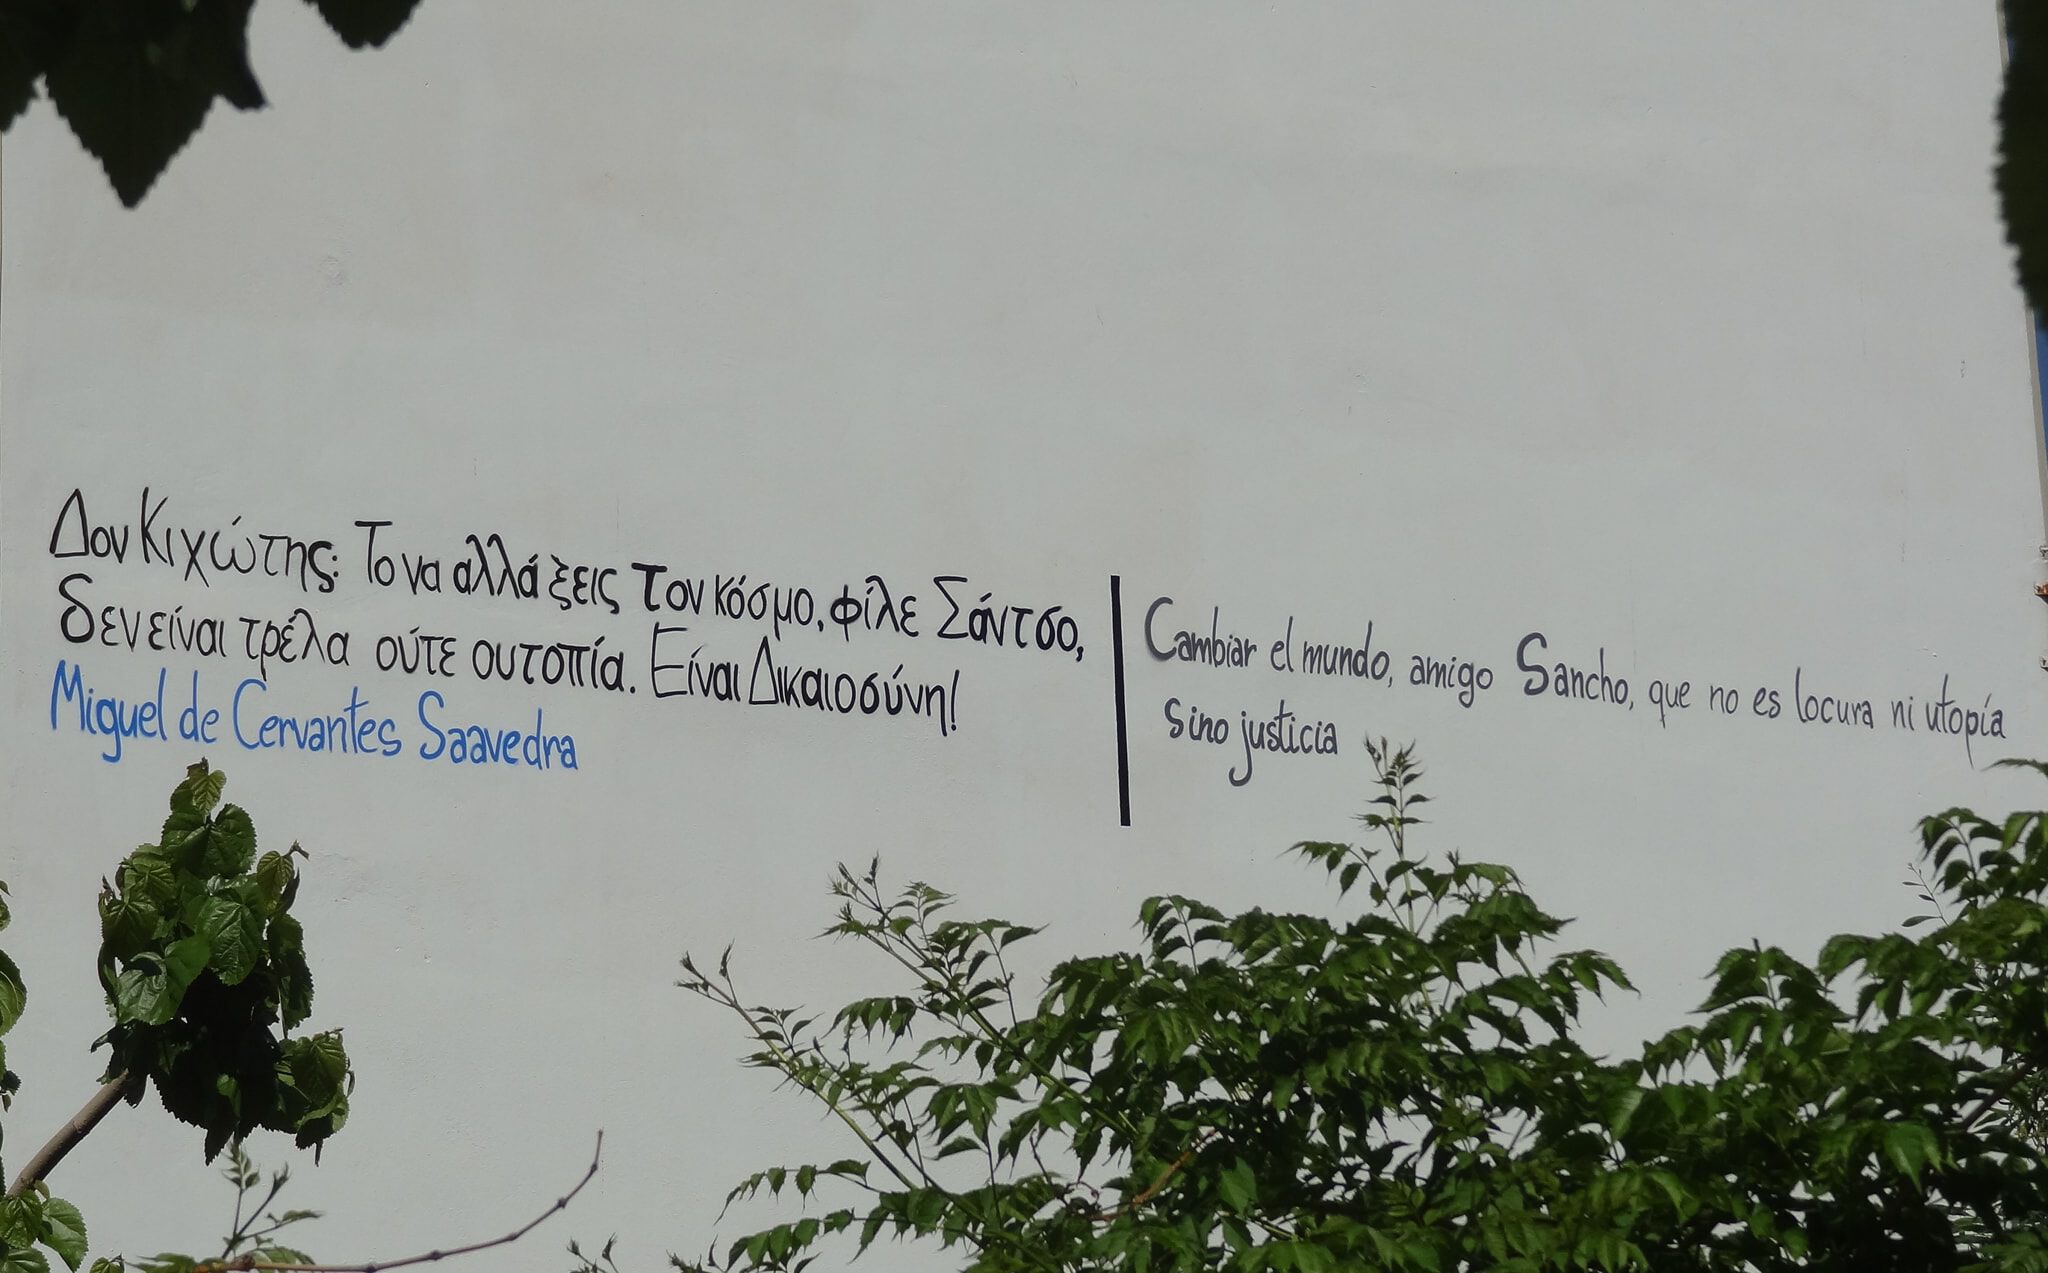 Δον Κιχώτης: Το να αλλάξεις τον κόσμο, φίλε Σάντσο,
δεν είναι τρέλα ούτε ουτοπία. Είναι Δικαιοσύνη!
Miguel de Cervantes Saavedra
Cambiar el mundo, amigo Sancho, que no es locura ni utopía
sino justicia